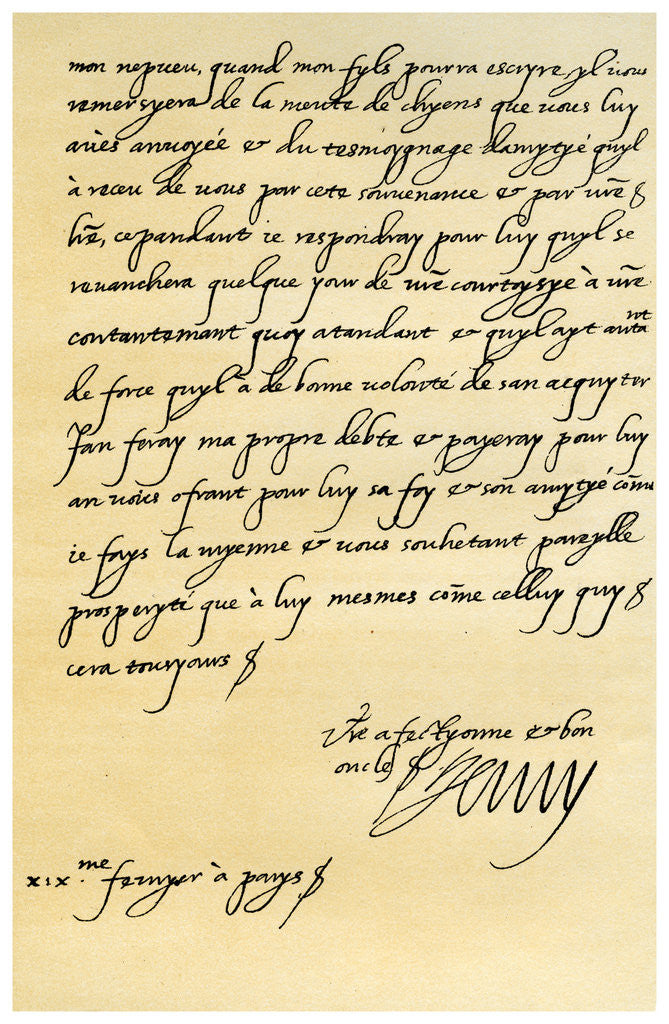 mon nepueu, quand mon fyls pourra escryre yl vous
remersyera de la meute de chyens que vous luy
aues anuoyée & du tesmoygnage damytyé quyl
à receu de vous par cete souuenance & par vr̃e
lr̃e, cepandant ie respondray pour luy quyl se
reuanchera quelque your de vr̃e courtoysye à vr̃e
contantemant quoy atandant & quyl ayt autant
de force quyl à de bonne volonté de san acquyter
Jan feray ma propre debte & payeray pour luy
an vous ofrant pour luy sa foy & son amytyé com̃e
ie fays la myenne & vous souhetant pareylle
prosperyté que à luy mesmes com̃e celluy quy
cera tousyours
Vr̃e afectyonne & bon
oncle Henry
xix.me feuryer à parys